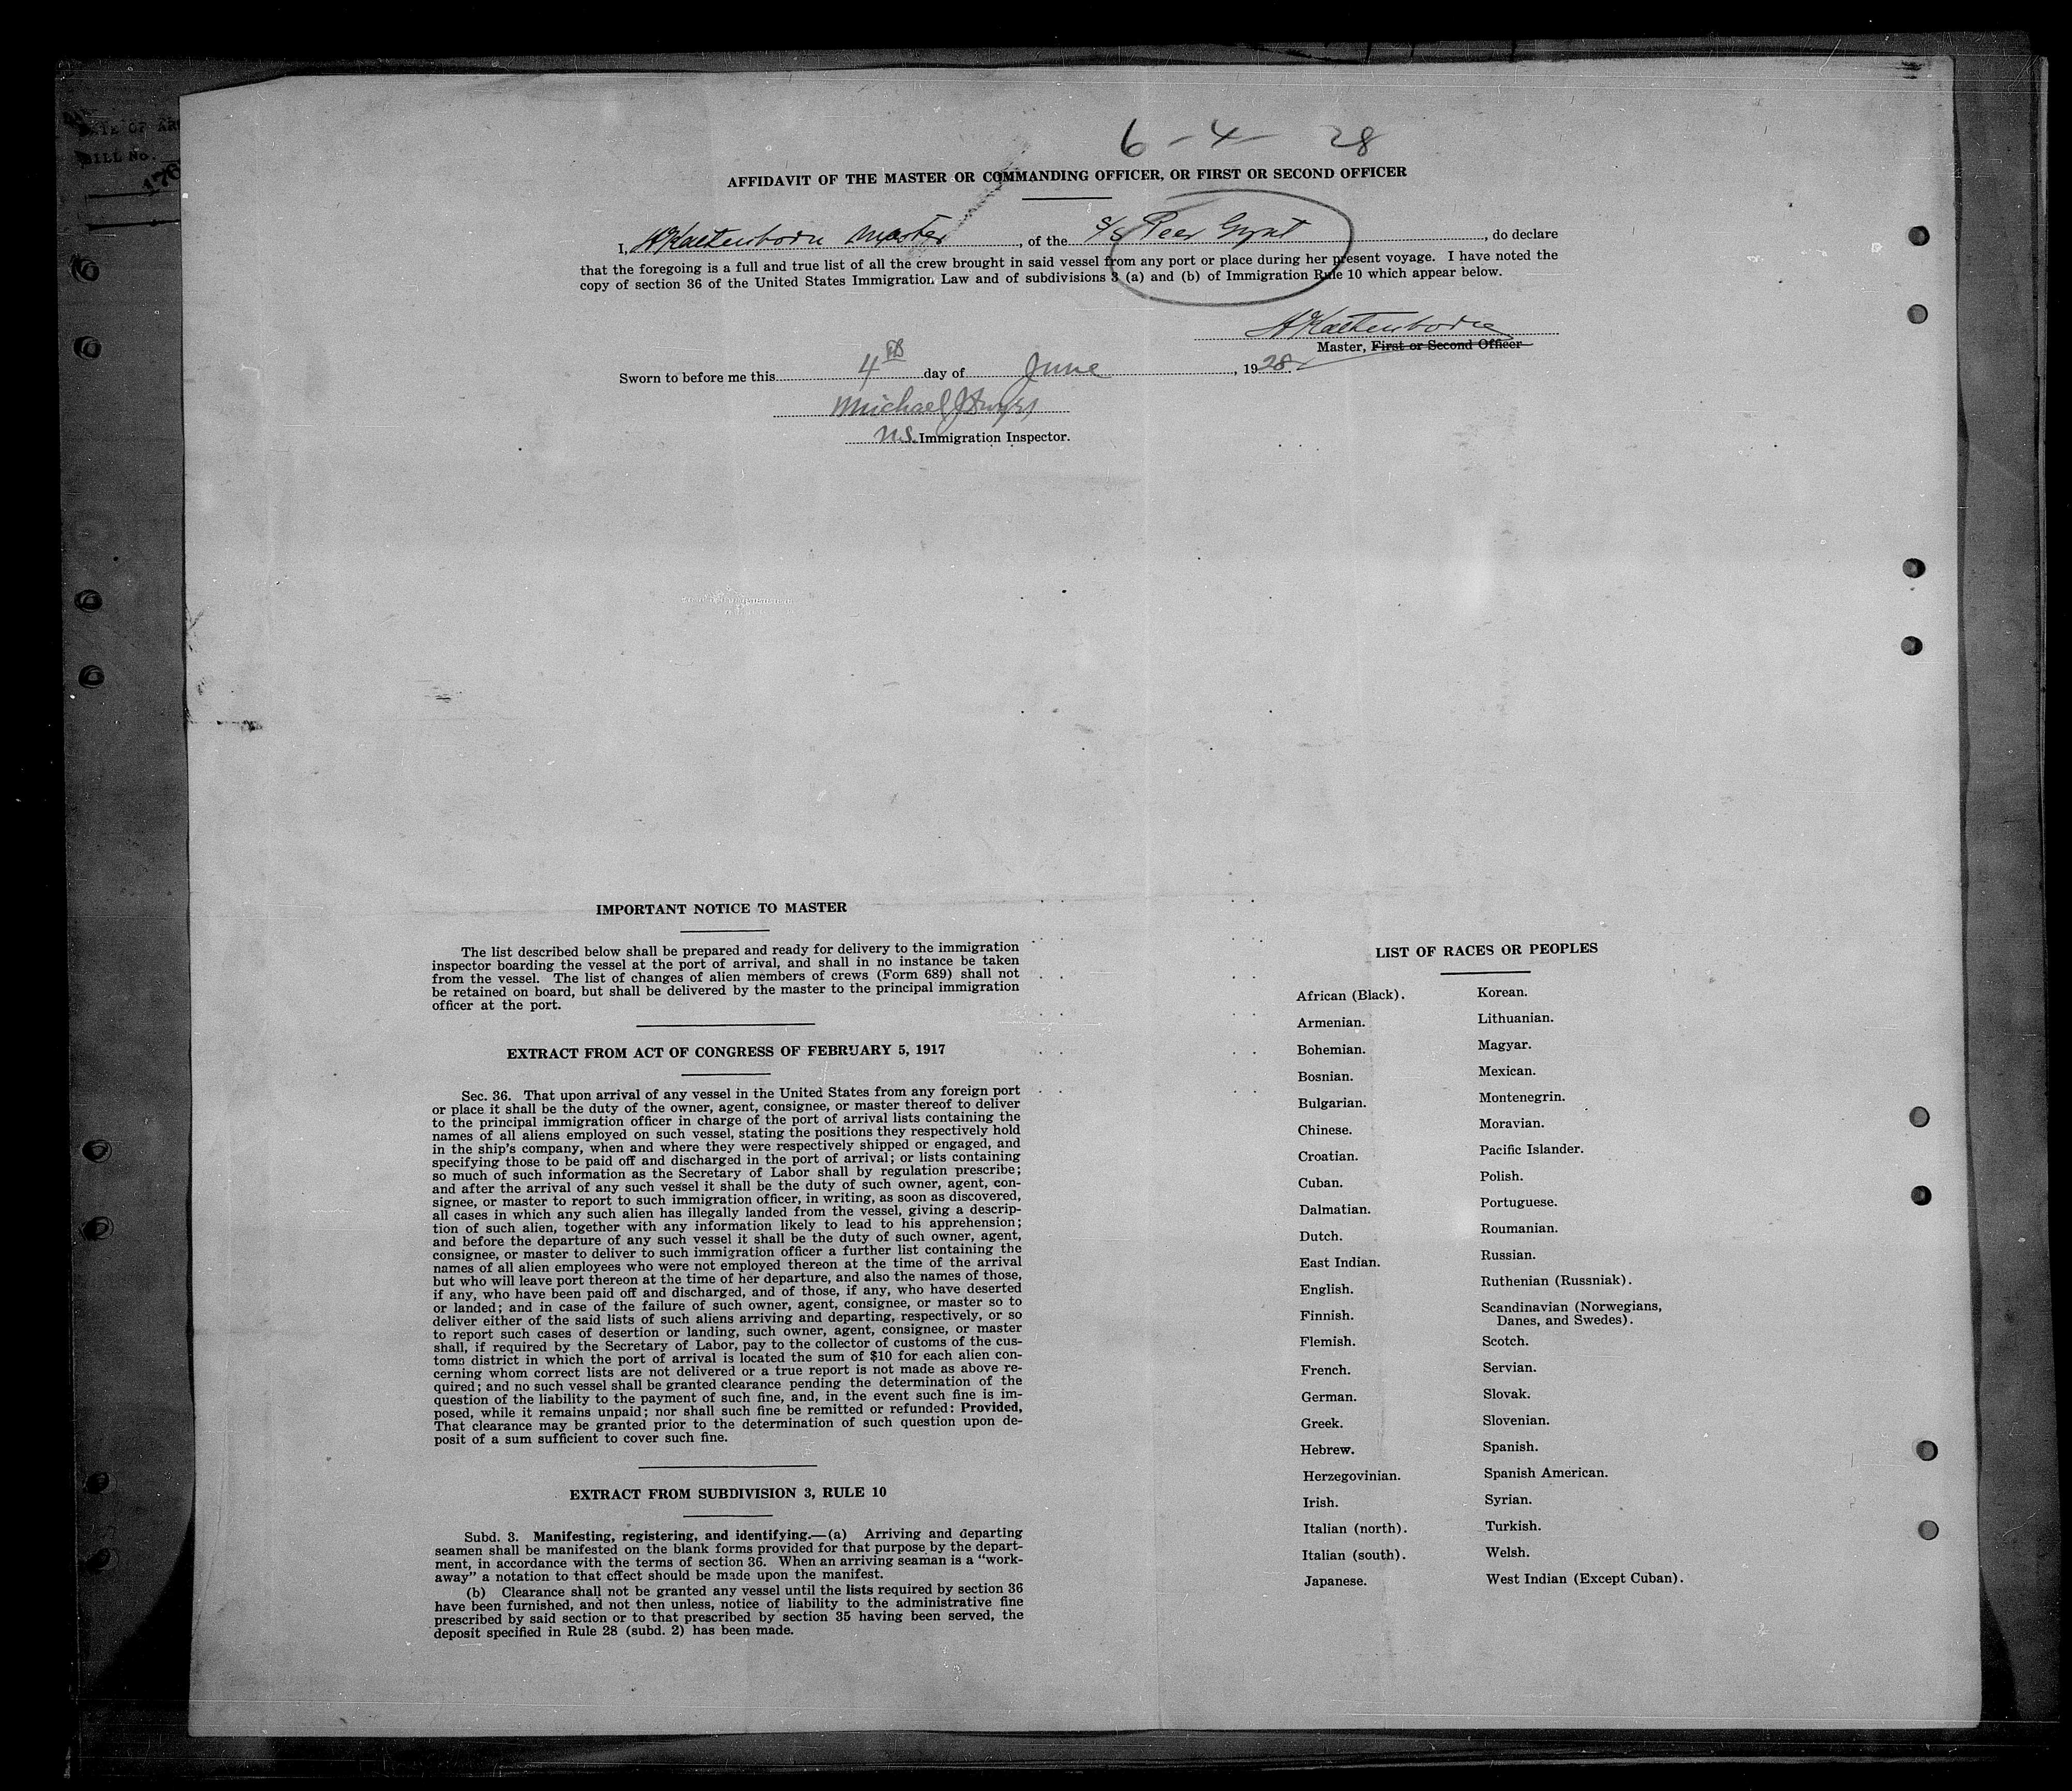 6-4-28
AFFIDAVIT OF THE MASTER OR COMMANDING OFFICER, OR FIRST OR SECOND OFFICER
I, H Kaltenborn Master, of the S/S Peer Gynt, do declare
that the foregoing is a full and true list of all the crew brought in said vessel from any port or place during her present voyage. I have noted the
copy of section 36 of the United States Immigration Law and of subdivisions 3 (a) and (b) of Immigration Rule 10 which appear below.
H Kaltenborn
Master, First or Second Officer
Sworn to before me this 4th day of June, 1928.
Michael
U.S. Immigration Inspector.
BILL No.
176
IMPORTANT NOTICE TO MASTER
The list described below shall be prepared and ready for delivery to the immigration
inspector boarding the vessel at the port of arrival, and shall in no instance be taken
from the vessel. The list of changes of alien members of crews (Form 689) shall not
be retained on board, but shall be delivered by the master to the principal immigration
officer at the port.
EXTRACT FROM ACT OF CONGRESS OF FEBRUARY 5, 1917
Sec. 36. That upon arrival of any vessel in the United States from any foreign port
or place it shall be the duty of the owner, agent, consignee, or master thereof to deliver
to the principal immigration officer in charge of the port of arrival lists containing the
names of all aliens employed on such vessel, stating the positions they respectively hold
in the ship's company, when and where they were respectively shipped or engaged, and
specifying those to be paid off and discharged in the port of arrival; or lists containing
so much of such information as the Secretary of Labor shall by regulation prescribe;
and after the arrival of any such vessel it shall be the duty of such owner, agent, con-
signee, or master to report to such immigration officer, in writing, as soon as discovered,
all cases in which any such alien has illegally landed from the vessel, giving a descrip-
tion of such alien, together with any information likely to lead to his apprehension;
and before the departure of any such vessel it shall be the duty of such owner, agent,
consignee, or master to deliver to such immigration officer a further list containing the
names of all alien employees who were not employed thereon at the time of the arrival
but who will leave port thereon at the time of her departure, and also the names of those,
if any, who have been paid off and discharged, and of those, if any, who have deserted
or landed; and in case of the failure of such owner, agent, consignee, or master so to
deliver either of the said lists of such aliens arriving and departing, respectively, or so
to report such cases of desertion or landing, such owner, agent, consignee, or master
shall, if required by the Secretary of Labor, pay to the collector of customs of the cus-
toms district in which the port of arrival is located the sum of $10 for each alien con-
cerning whom correct lists are not delivered or a true report is not made as above re-
quired; and no such vessel shall be granted clearance pending the determination of the
question of the liability to the payment of such fine, and, in the event such fine is im-
posed, while it remains unpaid; nor shall such fine be remitted or refunded: Provided,
That clearance may be granted prior to the determination of such question upon de-
posit of a sum sufficient to cover such fine.
EXTRACT FROM SUBDIVISION 3, RULE 10
Subd. 3. Manifesting, registering, and identifying.—(a) Arriving and departing
seamen shall be manifested on the blank forms provided for that purpose by the depart-
ment, in accordance with the terms of section 36. When an arriving seaman is a "work-
away" a notation to that effect should be made upon the manifest.
(b) Clearance shall not be granted any vessel until the lists required by section 36
have been furnished, and not then unless, notice of liability to the administrative fine
prescribed by said section or to that prescribed by section 35 having been served, the
deposit specified in Rule 28 (subd. 2) has been made.
LIST OF RACES OR PEOPLES
African (Black).
Armenian.
Bohemian.
Bosnian.
Bulgarian.
Chinese.
Croatian.
Cuban.
Dalmatian.
Dutch.
East Indian.
English.
Finnish.
Flemish.
French.
German.
Greek.
Hebrew.
Herzegovinian.
Irish.
Italian (north).
Italian (south).
Japanese.
Korean.
Lithuanian.
Magyar.
Mexican.
Montenegrin.
Moravian.
Pacific Islander.
Polish.
Portuguese.
Roumanian.
Russian.
Ruthenian (Russniak).
Scandinavian (Norwegians,
Danes, and Swedes).
Scotch.
Servian.
Slovak.
Slovenian.
Spanish.
Spanish American.
Syrian.
Turkish.
Welsh.
West Indian (Except Cuban).